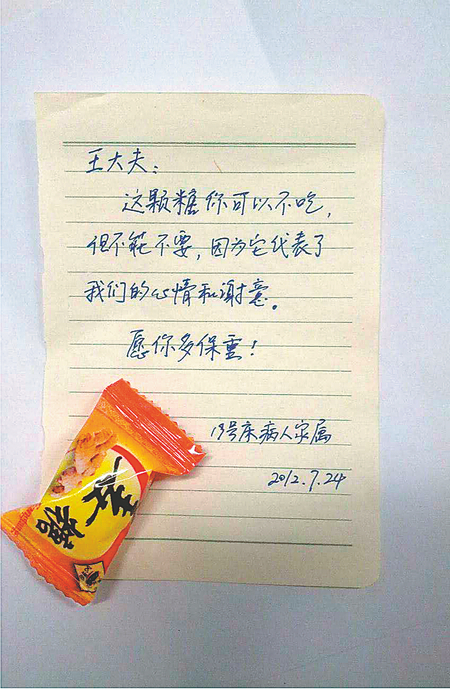 王大夫：
这颗糖你可以不吃，
但不能不要，因为它代表了
我们的心情和谢意。
愿你多保重！
13号床病人家属
2012.7.24
姜糖